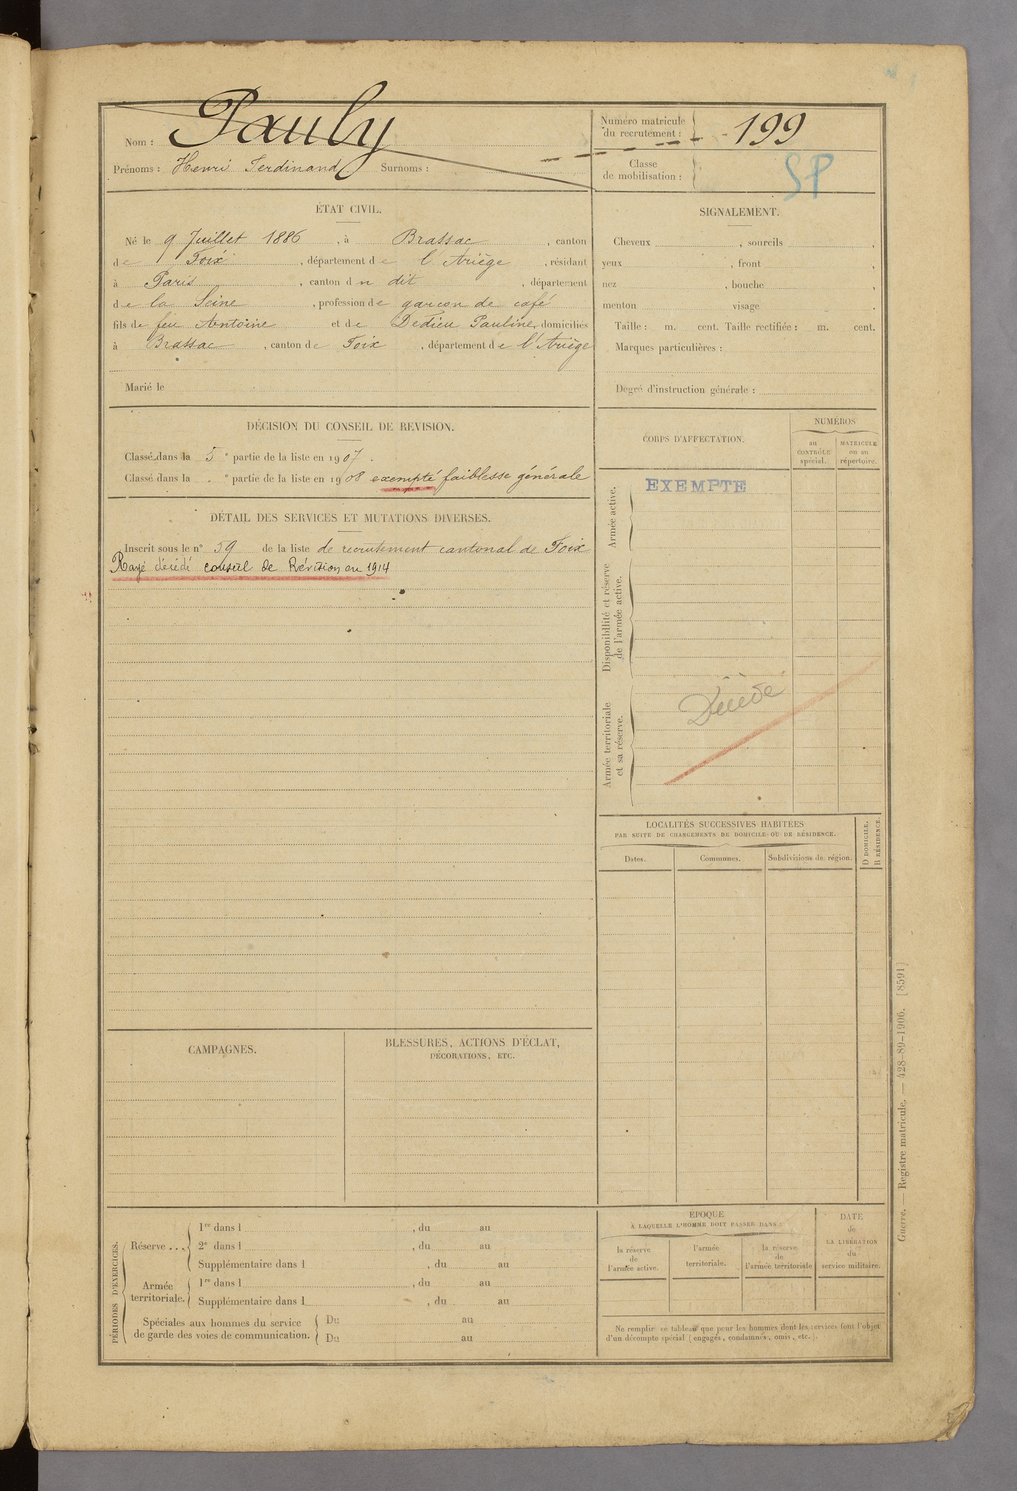 Nom : Pauly
Prénoms : Henri Ferdinand Surnoms :
Numéro matricule
du recrutement : 199
Classe
de mobilisation : SP
ÉTAT CIVIL.
Né le 9 Juillet 1886, à Brassac, canton
de Foix, département de l'Ariège, résidant
à Paris, canton du dit, département
de la Seine, profession de garçon de café
fils de feu Antoine et de Dedieu Pauline, domiciliés
à Brassac, canton de Foix, département de l'Ariège
Marié le
SIGNALEMENT.
Cheveux , sourcils ,
yeux , front ,
nez , bouche ,
menton visage .
Taille : m. cent. Taille rectifiée : m. cent.
Marques particulières :
Degré d'instruction générale :
DÉCISION DU CONSEIL DE REVISION.
Classé dans la 5e partie de la liste en 1907.
Classé dans la . e partie de la liste en 1908 exempté faiblesse générale
DÉTAIL DES SERVICES ET MUTATIONS DIVERSES.
Inscrit sous le n° 59 de la liste de recrutement cantonal de Foix
Rayé décédé conseil de Révision en 1914
CORPS D'AFFECTATION.
NUMÉROS
au
CONTRÔLE
spécial.
MATRICULE
ou au
répertoire.
Armée active.
EXEMPTÉ
Disponibilité et réserve
de l'armée active.
Armée territoriale
et sa réserve.
Décédé
LOCALITÉS SUCCESSIVES HABITÉES
PAR SUITE DE CHANGEMENTS DE DOMICILE OU DE RÉSIDENCE.
Dates.
Communes.
Subdivisions de région.
D DOMICILE.
R RÉSIDENCE.
CAMPAGNES.
BLESSURES, ACTIONS D'ÉCLAT,
DÉCORATIONS, ETC.
PÉRIODES D'EXERCICES.
Réserve ...
1re dans l , du au
2e dans l , du au
Supplémentaire dans l , du au
Armée
territoriale.
1re dans l , du au
Supplémentaire dans l , du au
Spéciales aux hommes du service
de garde des voies de communication.
Du au
Du au
ÉPOQUE
À LAQUELLE L'HOMME DOIT PASSER DANS :
la réserve
de
l'armée active.
l'armée
territoriale.
la réserve
de
l'armée territoriale
DATE
de
LA LIBÉRATION
du
service militaire.
Ne remplir ce tableau que pour les hommes dont les services font l'objet
d'un décompte spécial (engagés, condamnés, omis, etc.).
Guerre. Registre matricule. — 428-89-1906. [8591]